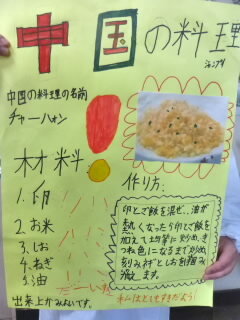 中国の料理
中国の料理の名前
チャーハン
材料
1. 卵
2. お米
3. しお
4. ねぎ
5. 油
作り方:
卵とご飯を混ぜ、油が
熱くなったら卵とご飯を
加えて均等に炒め、き
つね色になるまで炒め、
刻みねぎとしおを加え
ます。
出来上がみたいです。
私はとてもすきだよ!